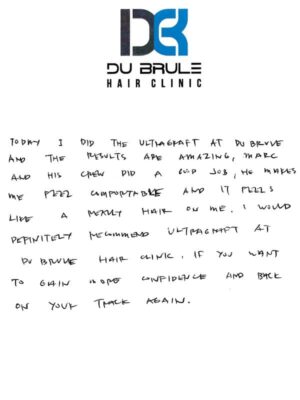 DU BRULE
HAIR CLINIC
TODAY I DID THE ULTRAGRAFT AT DU BRULE
AND THE RESULTS ARE AMAZING, MARC
AND HIS CREW DID A GOOD JOB, HE MAKES
ME FEEL COMFORTABLE AND IT FEELS
LIKE A REALLY HAIR ON ME. I WOULD
DEFINITELY RECOMMEND ULTRAGRAFT AT
DU BRULE HAIR CLINIC, IF YOU WANT
TO GAIN MORE CONFIDENCE AND BACK
ON YOUR TRACK AGAIN.